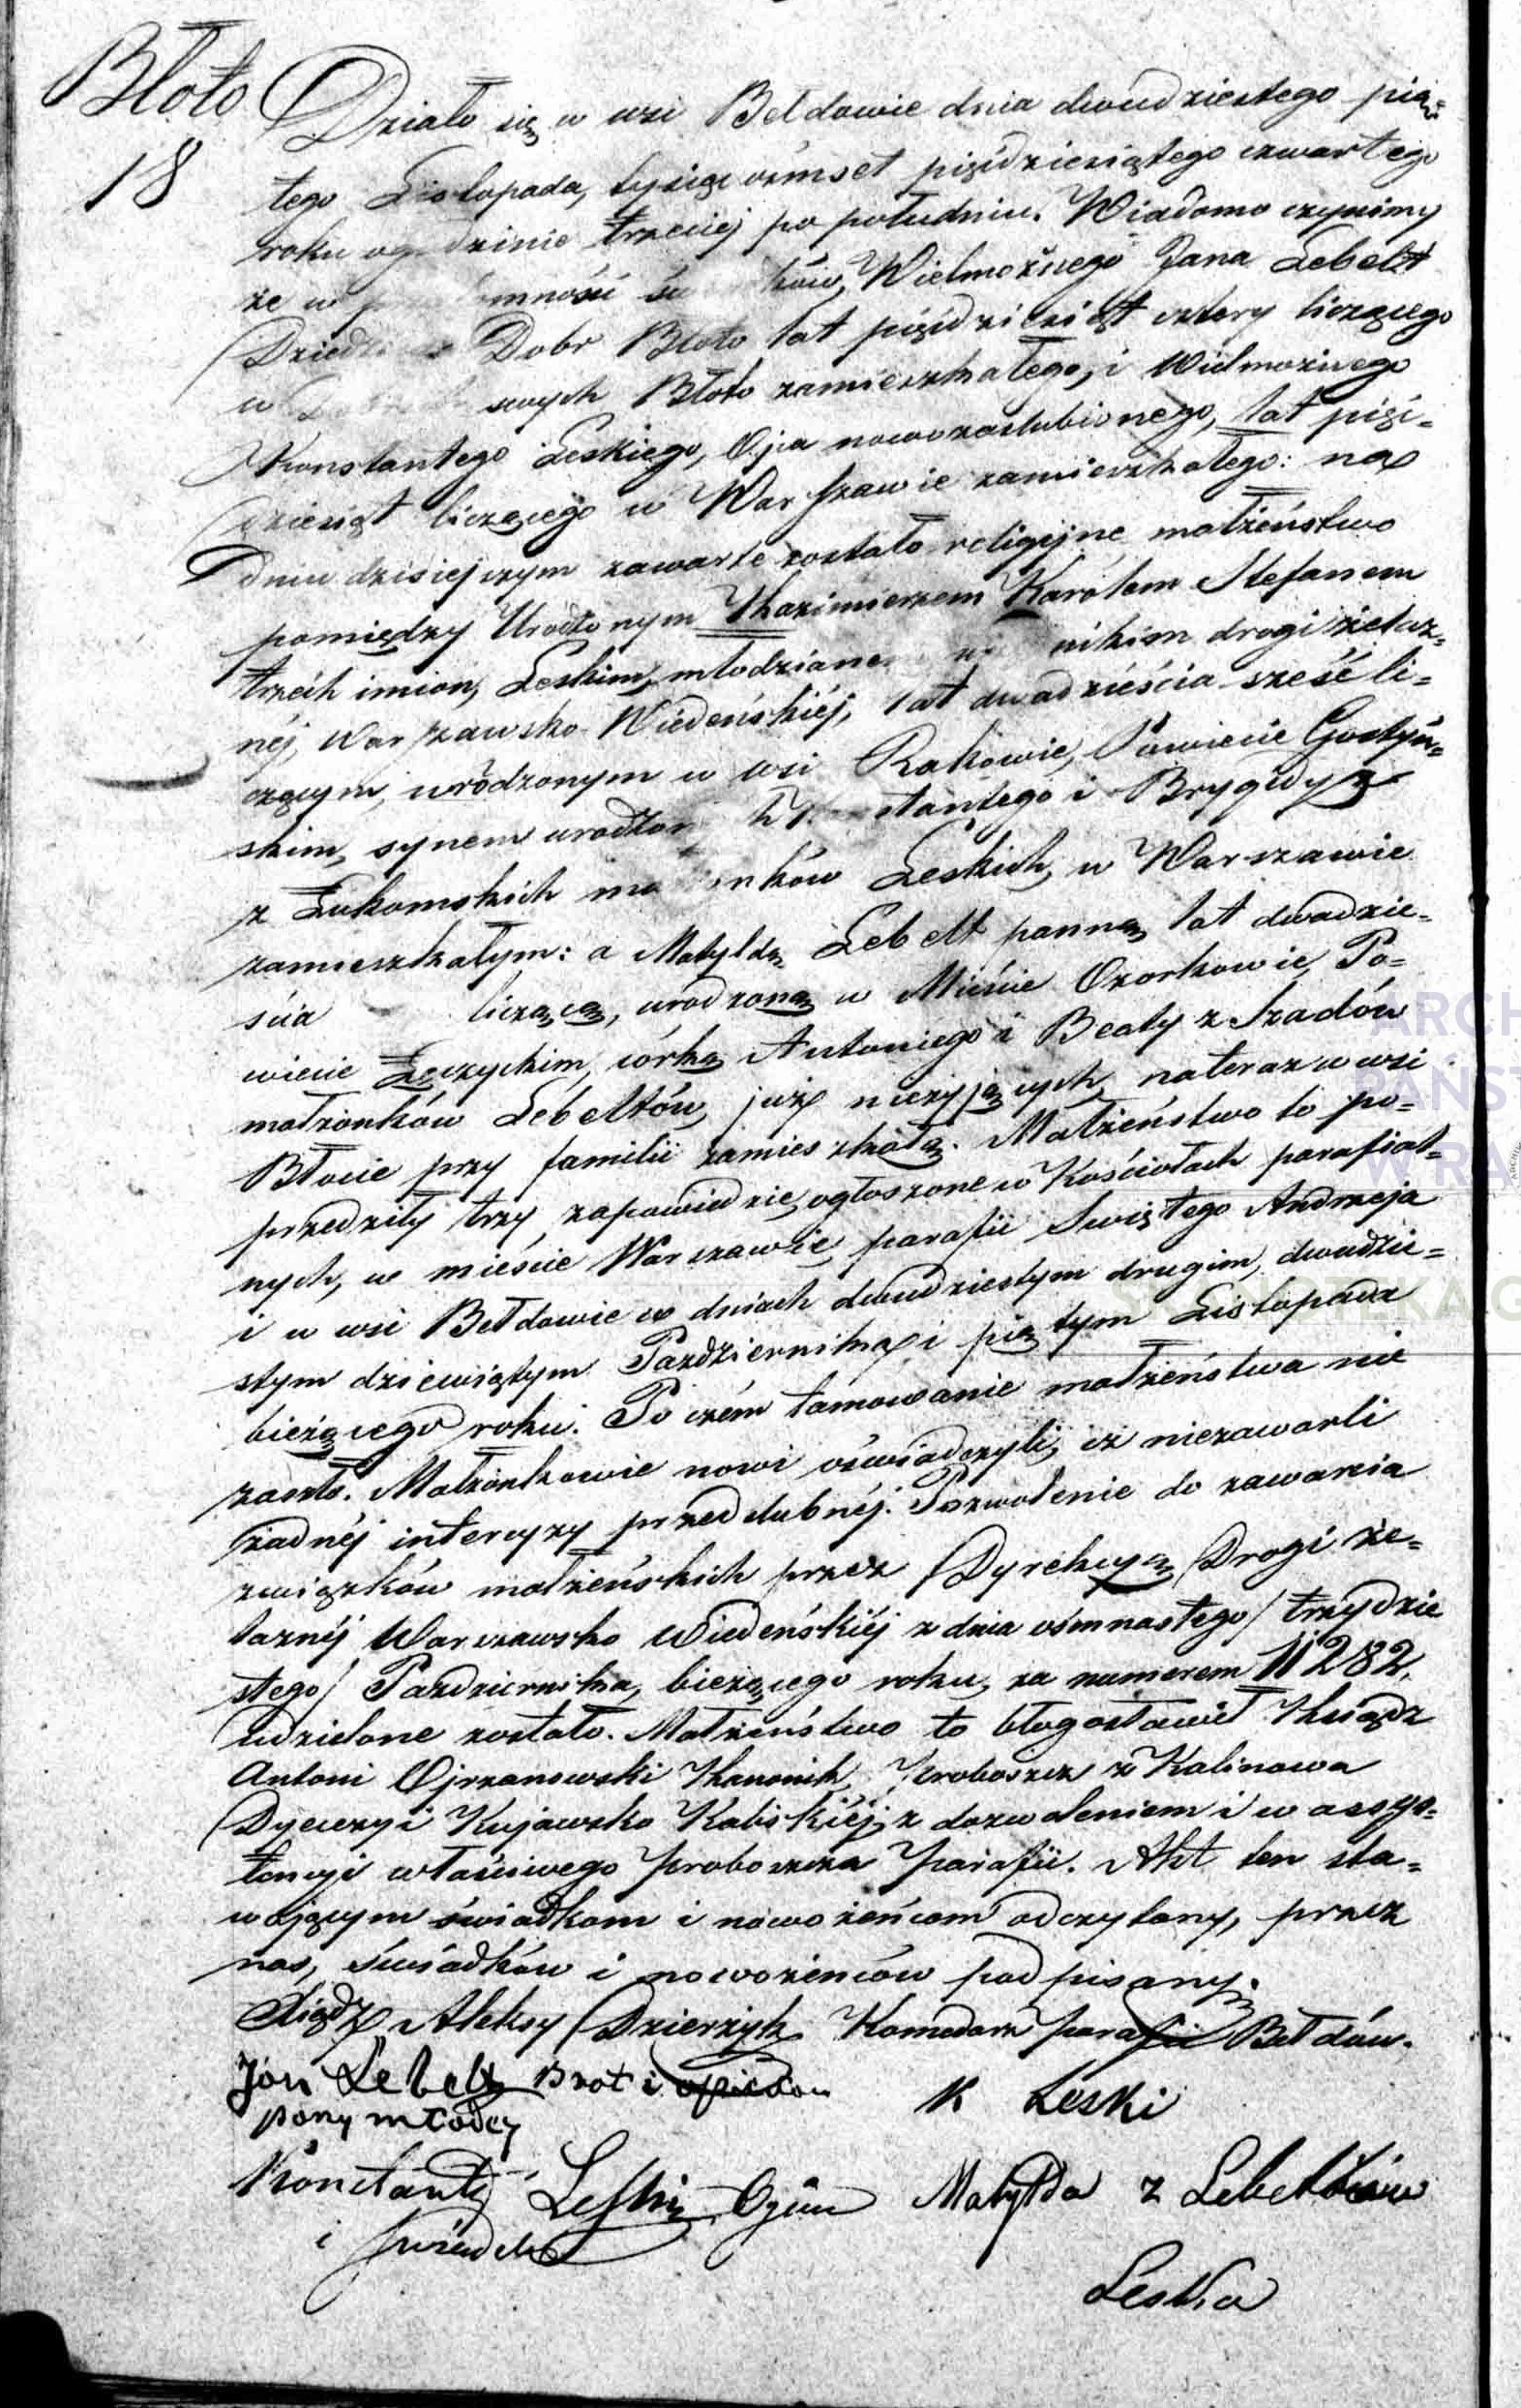 Błoto
18
Działo się w wsi Bełdowie dnia dwudziestego pią-
tego Listopada, tysiąc ośmset pięćdziesiątego czwartego
roku o godzinie trzeciej po południu. Wiadomo czynimy
że w przytomności świadków, Wielmożnego Jana Lebelt
Dziedzica Dobr Błoto lat pięćdziesiąt cztery liczącego
w Dobrach swych Błoto zamieszkałego, i Wielmożnego
Konstantego Leskiego, Ojca nowozaślubionego, lat pięć-
dziesiąt liczącego w Warszawie zamieszkałego: na
dniu dzisiejszym zawarte zostało religijne małżeństwo
pomiędzy Urodzonym Kazimierzem Karólem Stefanem
trzech imion, Leskim, młodzianem drogi żelaz-
néj, Warszawsko Wiedeńskiéj, lat dwadzieścia sześć li-
czącym, urodzonym w wsi Rakowie, Powiecie Gostyń-
skim, synem urodzonych Konstantego i Brygidy
z Łukomskich małżonków Leskich, w Warszawie
zamieszkałym: a Matyldą Lebelt panną, lat dwadzie-
ścia liczącą, urodzoną w Mieście Ozorkowie, Po-
wiecie Łęczyckim, córką Antoniego i Beaty z Szadów
małżonków Lebeltów, już nieżyjących, na teraz w wsi
Błocie przy familii zamieszkałą. Małżeństwo to po-
przedziły trzy zapowiedzie ogłoszone w Kościołach parafial-
nych, w mieście Warszawie, parafii Swiętego Andrzeja
i w wsi Bełdowie w dniach dwudziestym drugim, dwudzie-
stym dziewiątym Październikai piątym Listopada
bieżącego roku. Po czém tamowanie małżeństwa nie
zaszło. Małżonkowie nowi oświadczyli, iż niezawarli
żadnéj intercyzy przedślubnéj. Pozwolenie do zawarcia
związków małżeńskich przez Dyrekcyą Drogi że-
laznéj Warszawsko Wiedeńskiéj z dnia ośmnastego/ trzydzie
stego/ Października, bieżącego roku, za numerem 11282,
udzielone zostało. Małżeństwo to błogosławił Ksiądz
Antoni Ojrzanowski Kanonik, Proboszcz z Kalinowa
Dyecezyi Kujawsko Kaliskiéj, z dozwoleniem i w assys-
tencyi właściwego Proboszcza Parafii. Akt ten sta-
wającym świadkom i nowożeńcom odczytany, przez
nas, świadków i nowożeńców podpisany.
Xiądz Aleksy Dzierzyk Komendarz parafii Bełdów.
Jan Lebelt Brat i opiekun
pany młodey
K Leski
Konstanty Leski Ojciec
i Swiadek
Matylda z Lebeltów
Leska